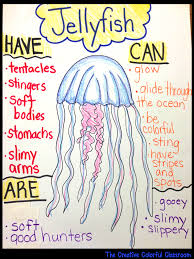 Jellyfish
HAVE
• tentacles
• stingers
• soft
bodies
• stomachs
• slimy
arms
CAN
• glow
• glide through
the ocean
• be
colorful
• sting
• have
stripes
and
spots
ARE
• soft
• good hunters
• gooey
• slimy
• slippery
The Creative Colorful Classroom